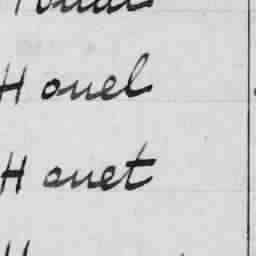 Houel
Houet